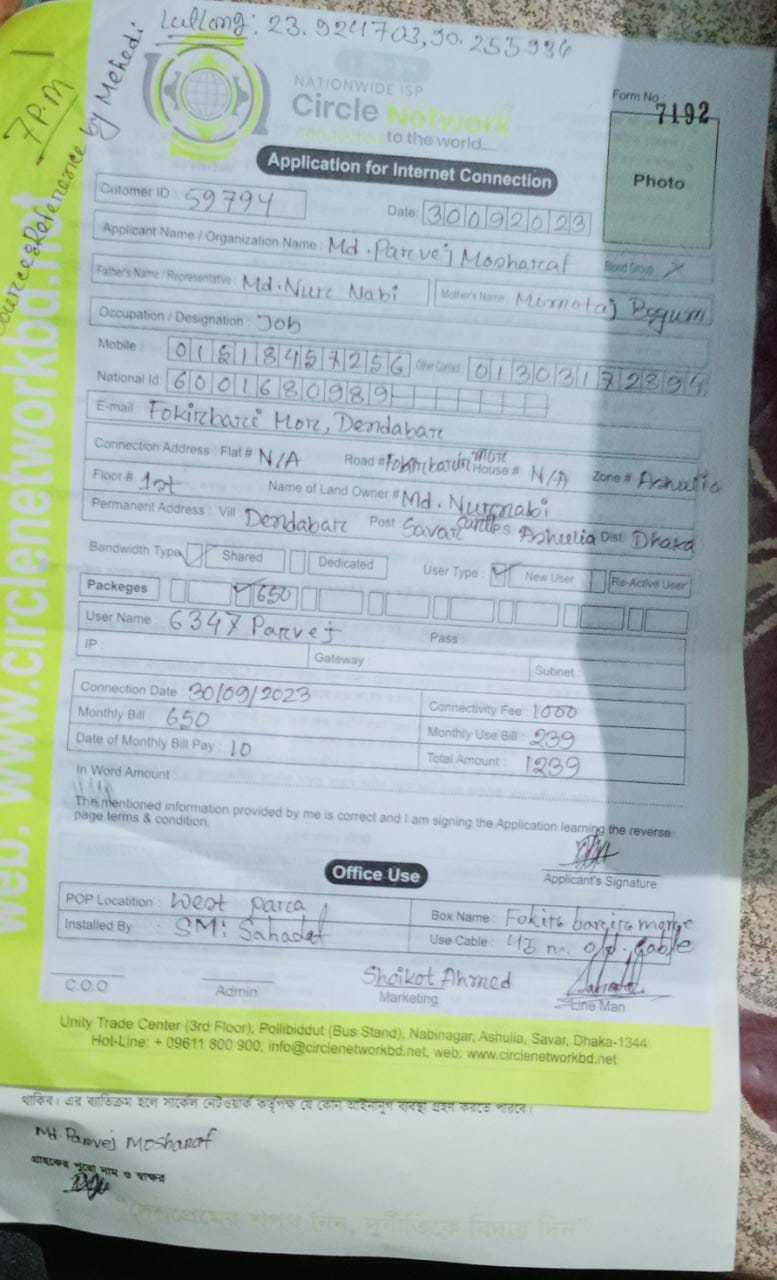 Latlong: 23.924703,90.255934
7P.M
Source&Reference by Mehedi
NATIONWIDE ISP
Circle Network
Connected to the world...
Form No : 7192
Photo
Application for Internet Connection
Cutomer ID : 59794
Date: 30092023
Applicant Name / Organization Name : Md. Parvej Mosharaf
Blood Group : X
Father's Name / Representative : Md. Nur Nabi
Mother's Name :
Occupation / Designation : Job
Mobile : 01518457256 Other Contact : 01303172394
National Id : 6001680989
E-mail Fokirbari More, Dendabar
Connection Address : Flat # N/A Road # Fokirbari More House # N/A Zone # Ashulia
Floor # 1st Name of Land Owner # Md. Nurnabi
Permanent Address : Vill Dendabar Post Savar Cantt PS Ashulia Dist: Dhaka
Bandwidth Type Shared Dedicated User Type : New User Re-Active User
Packeges 650
User Name : 6347Parvej Pass :
IP : Gateway : Subnet :
Connection Date : 30/09/2023 Connectivity Fee : 1000
Monthly Bill : 650 Monthly Use Bill : 239
Date of Monthly Bill Pay : 10 Total Amount : 1239
In Word Amount :
The mentioned information provided by me is correct and I am signing the Application learning the reverse
page terms & condition.
Applicant's Signature
Office Use
POP Locatition : West para Box Name :
Installed By : SMi Sahadat Use Cable : 45 m. o/d. Cable
Shaikot Ahmed
C.O.O Admin Marketing Line Man
Unity Trade Center (3rd Floor), Pollibiddut (Bus Stand), Nabinagar, Ashulia, Savar, Dhaka-1344
Hot-Line: + 09611 800 900, info@circlenetworkbd.net, web: www.circlenetworkbd.net
web: www.circlenetworkbd.net
থাকিব। এর ব্যতিক্রম হলে সার্কেল নেটওয়ার্ক কর্তৃপক্ষ যে কোন আইনানুগ ব্যবস্থা গ্রহণ করতে পারবে।
Md. Parvej Mosharaf
গ্রাহকের পুরো নাম ও স্বাক্ষর
"দেশপ্রেমের শপথ নিন, দুর্নীতিকে বিদায় দিন"